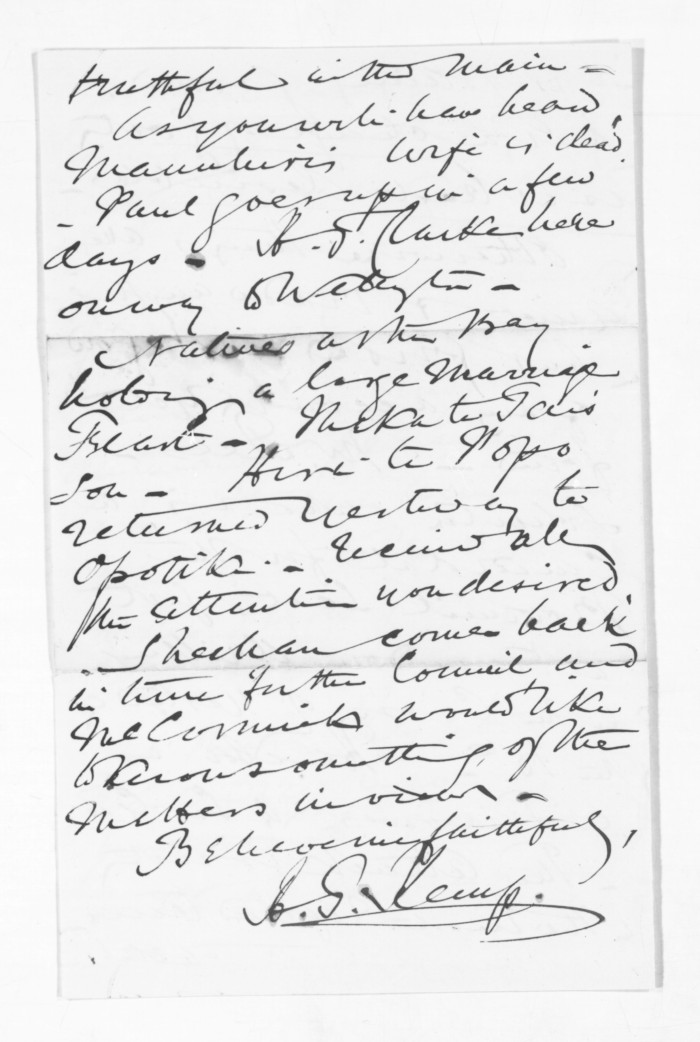 truthful in the main -
As you will have heard
Manuhiri's wife is dead.
- Paul goes up in a few
days - H. T. Clarke here
on way to Wellington -
Natives at the Bay
holding a large Marriage
Feast - te Tais
Son - Hira te Popo
returned yesterday to
Opotiki - received all
the attention you desired.
- Sheehan comes back
in time for the Council and
McCormick would like
to know something of the
matters in view -
Believe me faithfully,
Kemp.